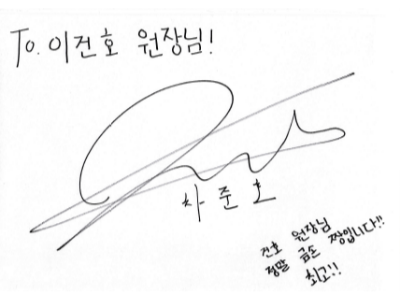 To. 이건호 원장님!
차준호
건호 원장님
정말 금손 짱입니다!!
최고!!